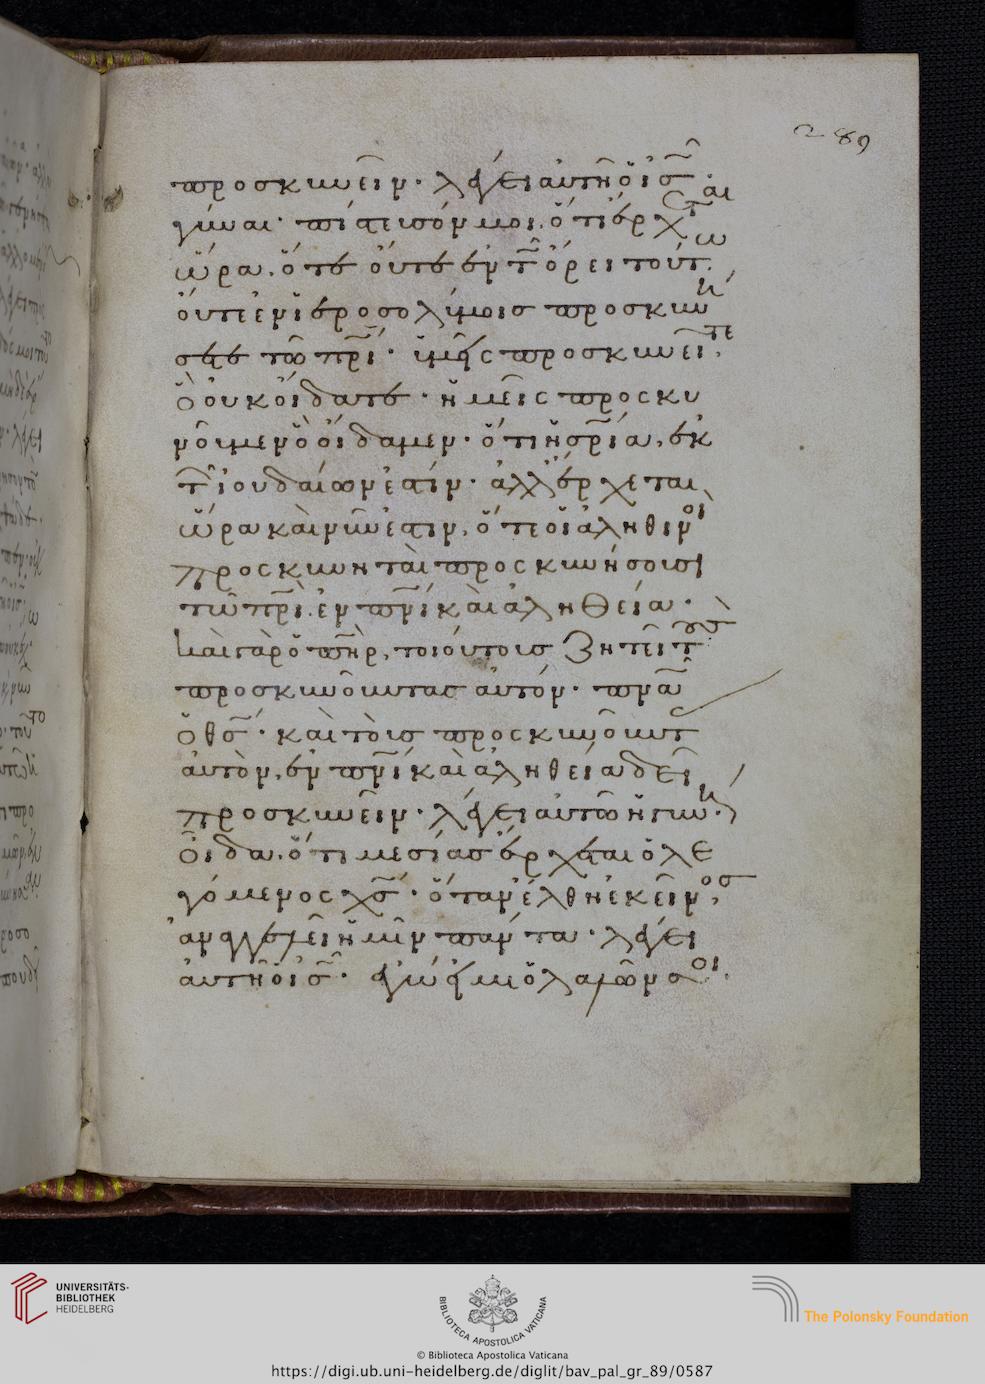 289
προσκυνεῖν· λέγει αὐτῆ ὁ ἰς̅·
γύναι· πίστευσόν μοι, ὅτι ἔρχεται
ὥρα, ὅτε οὔτε ἐν τῶ ὄρει τούτω
οὔτε ἐν ἱεροσολύμοις προσκυνή
σετε τῶ πρι̅· ὑμεῖς προσκυνεῖτε,
ὃ οὐκ οἴδατε· ἡμεῖς προσκυ
νοῦμεν ὃ οἴδαμεν· ὅτι ἡ σρ̅ία, ἐκ
τῶν ἰουδαίων ἐστίν· ἀλλ' ἔρχεται
ὥρα καὶ νῦν ἐστιν, ὅτε οἱ ἀληθινοὶ
προσκυνηταὶ προσκυνήσουσι
τῶ πρι̅ ἐν πνι̅ καὶ ἀληθεία·
καὶ γὰρ ὁ πηρ̅, τοιούτους ζητεῖ τοὺς
προσκυνοῦντας αὐτόν· πνα̅
ὁ θς̅· καὶ τοὺς προσκυνοῦντας
αὐτὸν, ἐν πνι̅ καὶ ἀληθεία δεῖ
προσκυνεῖν· λέγει αὐτῶ ἡ γυνή·
οἶδα, ὅτι μεσίας ἔρχεται ὁ λε
γόμενος χς̅· ὅταν ἔλθη ἐκεῖνος,
ἀναγγελεῖ ἡμῖν πάντα· λέγει
αὐτῆ ὁ ἰς̅· ἐγώ εἰμι ὁ λαλῶν σοι.
UNIVERSITÄTS-
BIBLIOTHEK
HEIDELBERG
BIBLIOTECA APOSTOLICA VATICANA
The Polonsky Foundation
© Biblioteca Apostolica Vaticana
https://digi.ub.uni-heidelberg.de/diglit/bav_pal_gr_89/0587